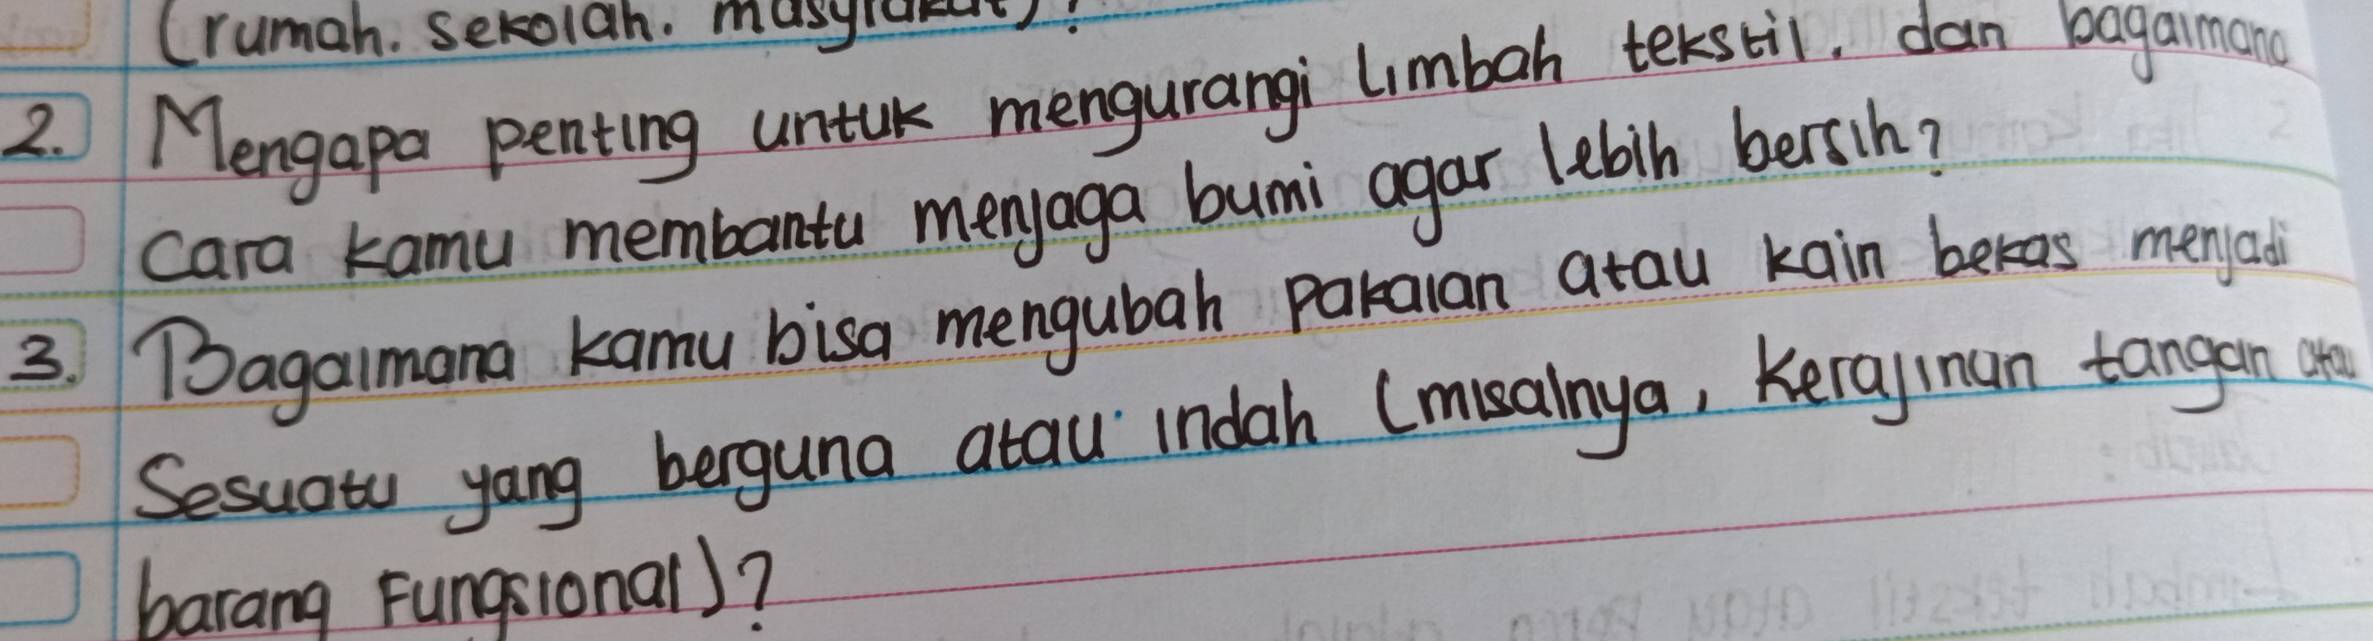 (rumah. sekolah. masyrakat)?
2. Mengapa penting untuk mengurangi limbah tekstil, dan bagaimana
cara kamu membantu menjaga bumi agar lebih bersih?
3. Bagaimana kamu bisa mengubah pakaian atau kain bekas menjadi
Sesuatu yang berguna atau indah (misalnya, kerajinan tangan atau
barang Fungsional)?